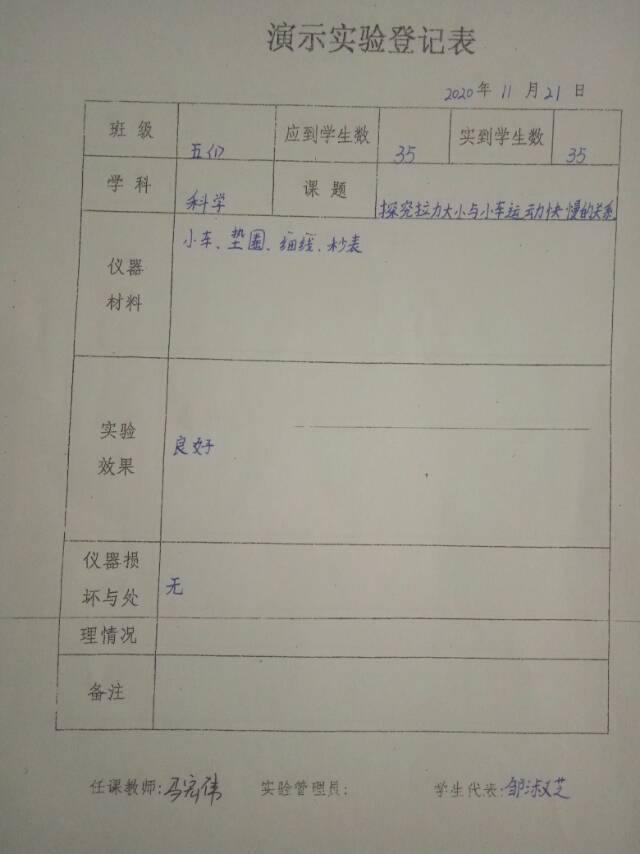 演示实验登记表
2020年 11 月 21 日
班级 五(1) 应到学生数 35 实到学生数 35
学科 科学 课题 探究拉力大小与小车运动快慢的关系
仪器材料 小车、垫圈、细线、秒表
实验效果 良好
仪器损坏与处理情况 无
备注
任课教师:冯宏伟 实验管理员: 学生代表:邹淑芝